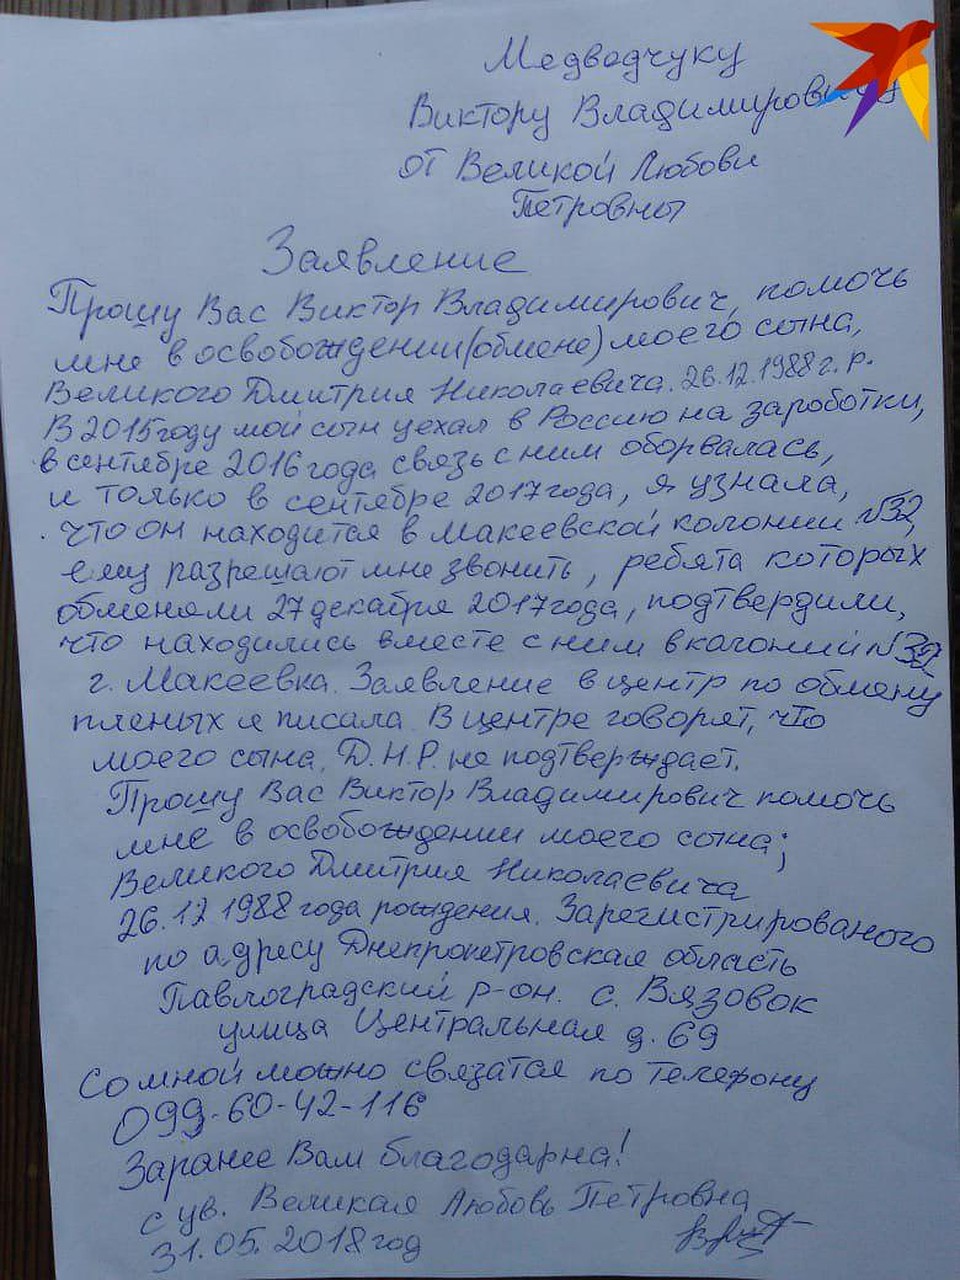 Медводчуку
Виктору Владимировичу
от Великой Любови
Петровны
Заявление
Прошу Вас Виктор Владимирович, помочь
мне в освобождении (обмене) моего сына,
Великого Дмитрия Николаевича. 26.12.1988 г. р.
В 2015 году мой сын уехал в Россию на зароботки,
в сентябре 2016 года связь с ним оборвалась,
и только в сентябре 2017 года, я узнала,
что он находится в Макеевской колонии №32,
ему разрешают мне звонить, ребята которых
обменяли 27 декабря 2017 года, подтвердили,
что находились вместе с ним в калонии №32
г. Макеевка. Заявление в центр по обмену
пленых я писала. В центре говорят, что
моего сына, Д.Н.Р. не подтверждает.
Прошу Вас Виктор Владимирович помочь
мне в освобождении моего сына;
Великого Дмитрия Николаевича
26.12 1988 года рождения. Зарегистрированого
по адресу Днепропетровская область
Павлоградский р-он. с. Вязовок
улица Центральная д. 69
Со мной можно связатся по телефону
099-60-42-116
Заранее Вам благодарна!
с ув. Великая Любовь Петровна
31.05.2018 год